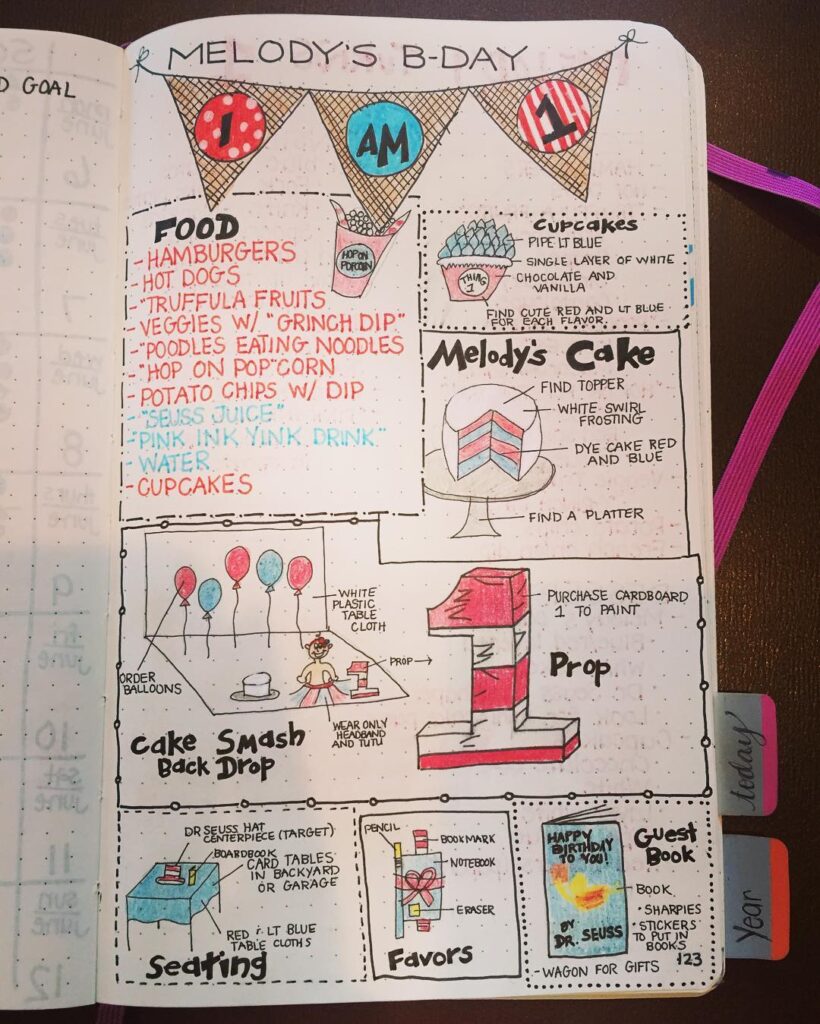 D GOAL
MELODY'S B-DAY
I
AM
1
FOOD
-HAMBURGERS
-HOT DOGS
-"TRUFFULA FRUITS
-VEGGIES W/ "GRINCH DIP"
-"POODLES EATING NOODLES
-"HOP ON POP"CORN
-POTATO CHIPS W/ DIP
-"SEUSS JUICE"
-"PINK INK YINK DRINK"
-WATER
-CUPCAKES
HOP ON
Cupcakes
PIPE LT BLUE
SINGLE LAYER OF WHITE
CHOCOLATE AND
VANILLA
THING
1
FIND CUTE RED AND LT BLUE
FOR EACH FLAVOR.
Melody's Cake
FIND TOPPER
WHITE SWIRL
FROSTING
DYE CAKE RED
AND BLUE
FIND A PLATTER
WHITE
PLASTIC
TABLE
CLOTH
ORDER
BALLOONS
PROP →
WEAR ONLY
HEADBAND
AND TUTU
Cake Smash
Back Drop
PURCHASE CARDBOARD
1 TO PAINT
Prop
DR SEUSS HAT
CENTERPIECE (TARGET)
BOARDBOOK
CARD TABLES
IN BACKYARD
OR GARAGE
RED & LT BLUE
TABLE CLOTHS
Seating
PENCIL
BOOKMARK
NOTEBOOK
ERASER
Favors
Guest
Book
HAPPY
BIRTHDAY
TO YOU!
BY
DR. SEUSS
BOOK
* SHARPIES
* STICKERS
TO PUT IN
BOOKS
-WAGON FOR GIFTS
123
today
Year